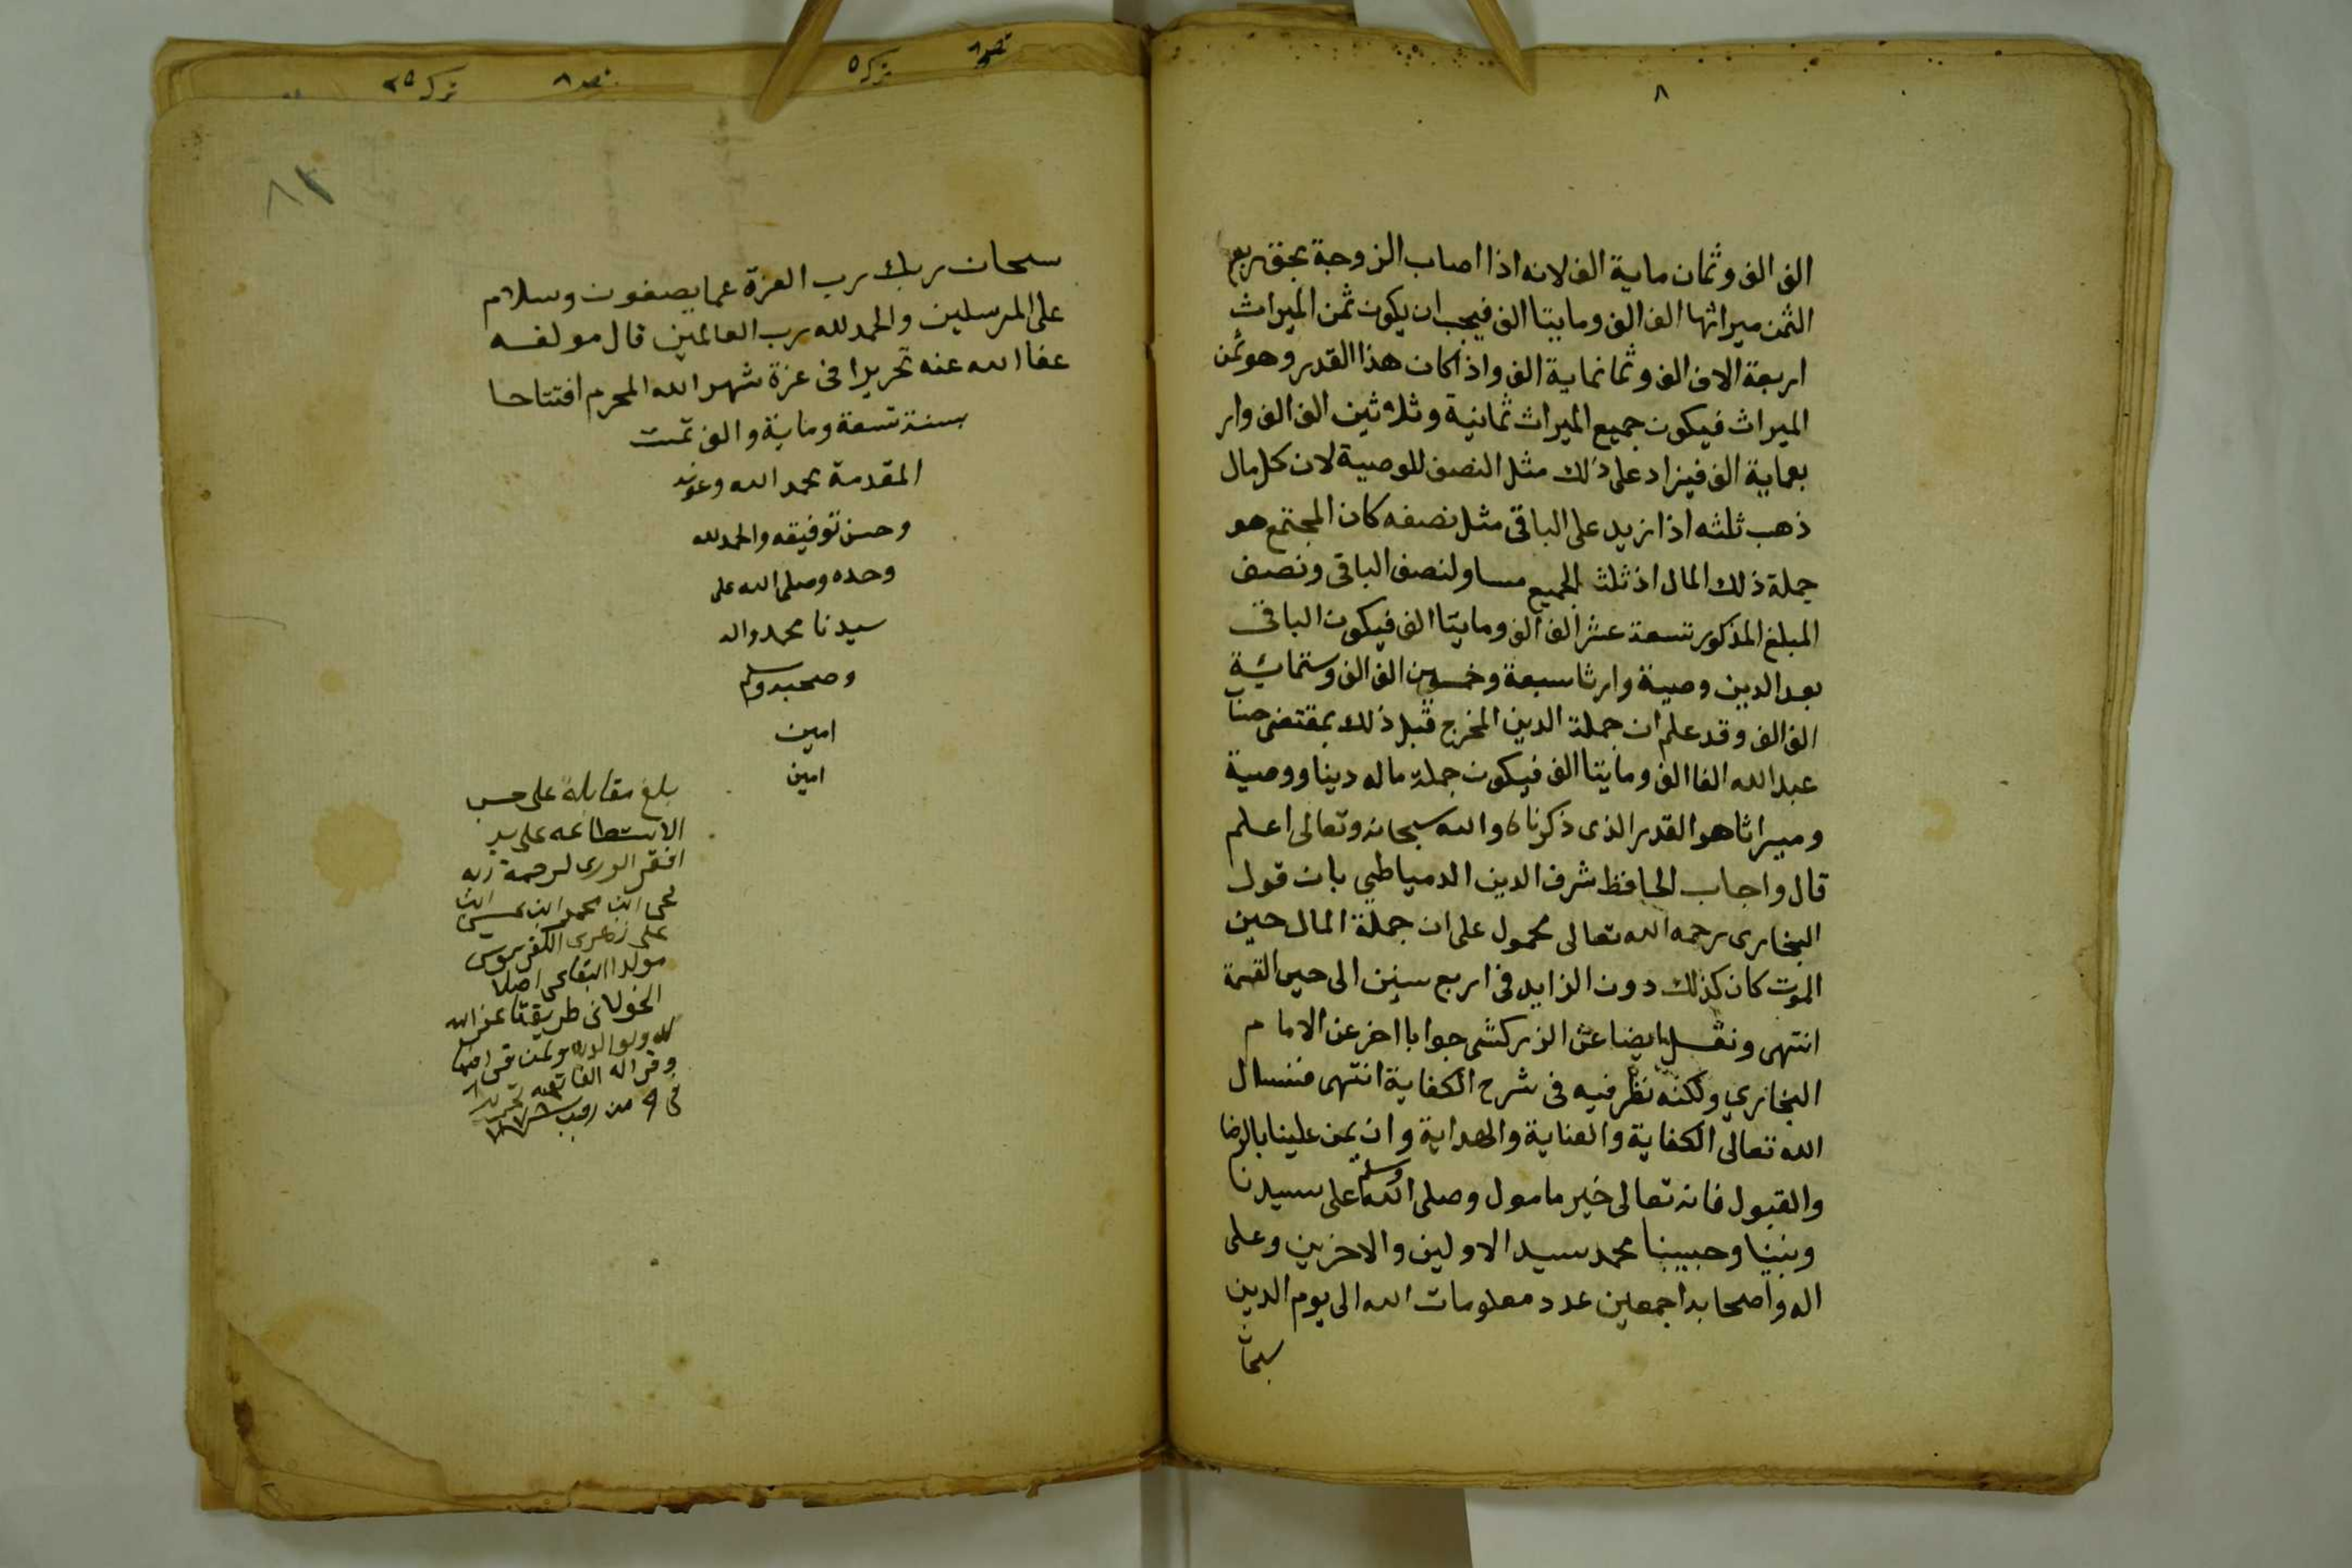 ٨
الف الف وثمان ماية الف لانه اذا اصاب الزوجة بحق ربع
الثمن ميراثها الف الف ومايتا الف فيجب ان يكون ثمن الميراث
اربعة الاف الف وثمانماية الف واذا كان هذا القدر وهو ثمن
الميراث فيكون جميع الميراث ثمانية وثلاثين الف الف وار
بعماية الف فيزاد على ذلك مثل النصف للوصية لان كل مال
ذهب ثلثه اذا زيد على الباقى مثل نصفه كان المجتمع هو
جملة ذلك المال اذ ثلث الجميع مساو لنصف الباقى ونصف
المبلغ المذكور تسعة عشر الف الف ومايتا الف فيكون الباقى
بعد الدين وصية وارثا سبعة وخمسين الف الف وستمائة
الف الف وقد علم ان جملة الدين المخرج قبل ذلك بمقتضى حساب
عبد الله الفا الف ومايتا الف فيكون جملة ماله دينا ووصية
وميراثا هو القدر الذى ذكرناه والله سبحانه وتعالى اعلم
قال واجاب الحافظ شرف الدين الدمياطي بان قول
البخارى رحمه الله تعالى محمول على ان جملة المال حين
الموت كان كذلك دون الزايد فى اربع سنين الى حين القسمة
انتهى ونقل ايضا عن الزركشى جوابا اخر عن الامام
البخاري ولكنه نظر فيه فى شرح الكفاية انتهى فنسال
الله تعالى الكفاية والعناية والهداية وان يمن علينا بالرضا
والقبول فانه تعالى خير مامول وصلى الله وسلم على سيدنا
ونبينا وحبيبنا محمد سيد الاولين والاخرين وعلى
اله واصحابه اجمعين عدد معلومات الله الى يوم الدين
سبحان
ترك ٥
ترك ٢٥
سبحان ربك رب العزة عما يصفون وسلام
على المرسلين والحمد لله رب العالمين قال مولفه
عفا الله عنه تحريرا فى غرة شهر الله المحرم افتتاح
سنة تسعة وماية والف تمت
المقدمة بحمد الله وعونه
وحسن توفيقه والحمد لله
وحده وصلى الله على
سيدنا محمد واله
وصحبه وسلم
امين
امين
بلغ مقابلة على حسب
الاستطاعه على يد
افقر الورى لرحمة ربه
ابن محمد ابن ابن
على زهرى
مولدا البقاعى اصلا
الخولانى طريقتا غفر الله
له ولوالديه ولمن قرا
وقرا له الفاتحه تحريرا
فى من رجب